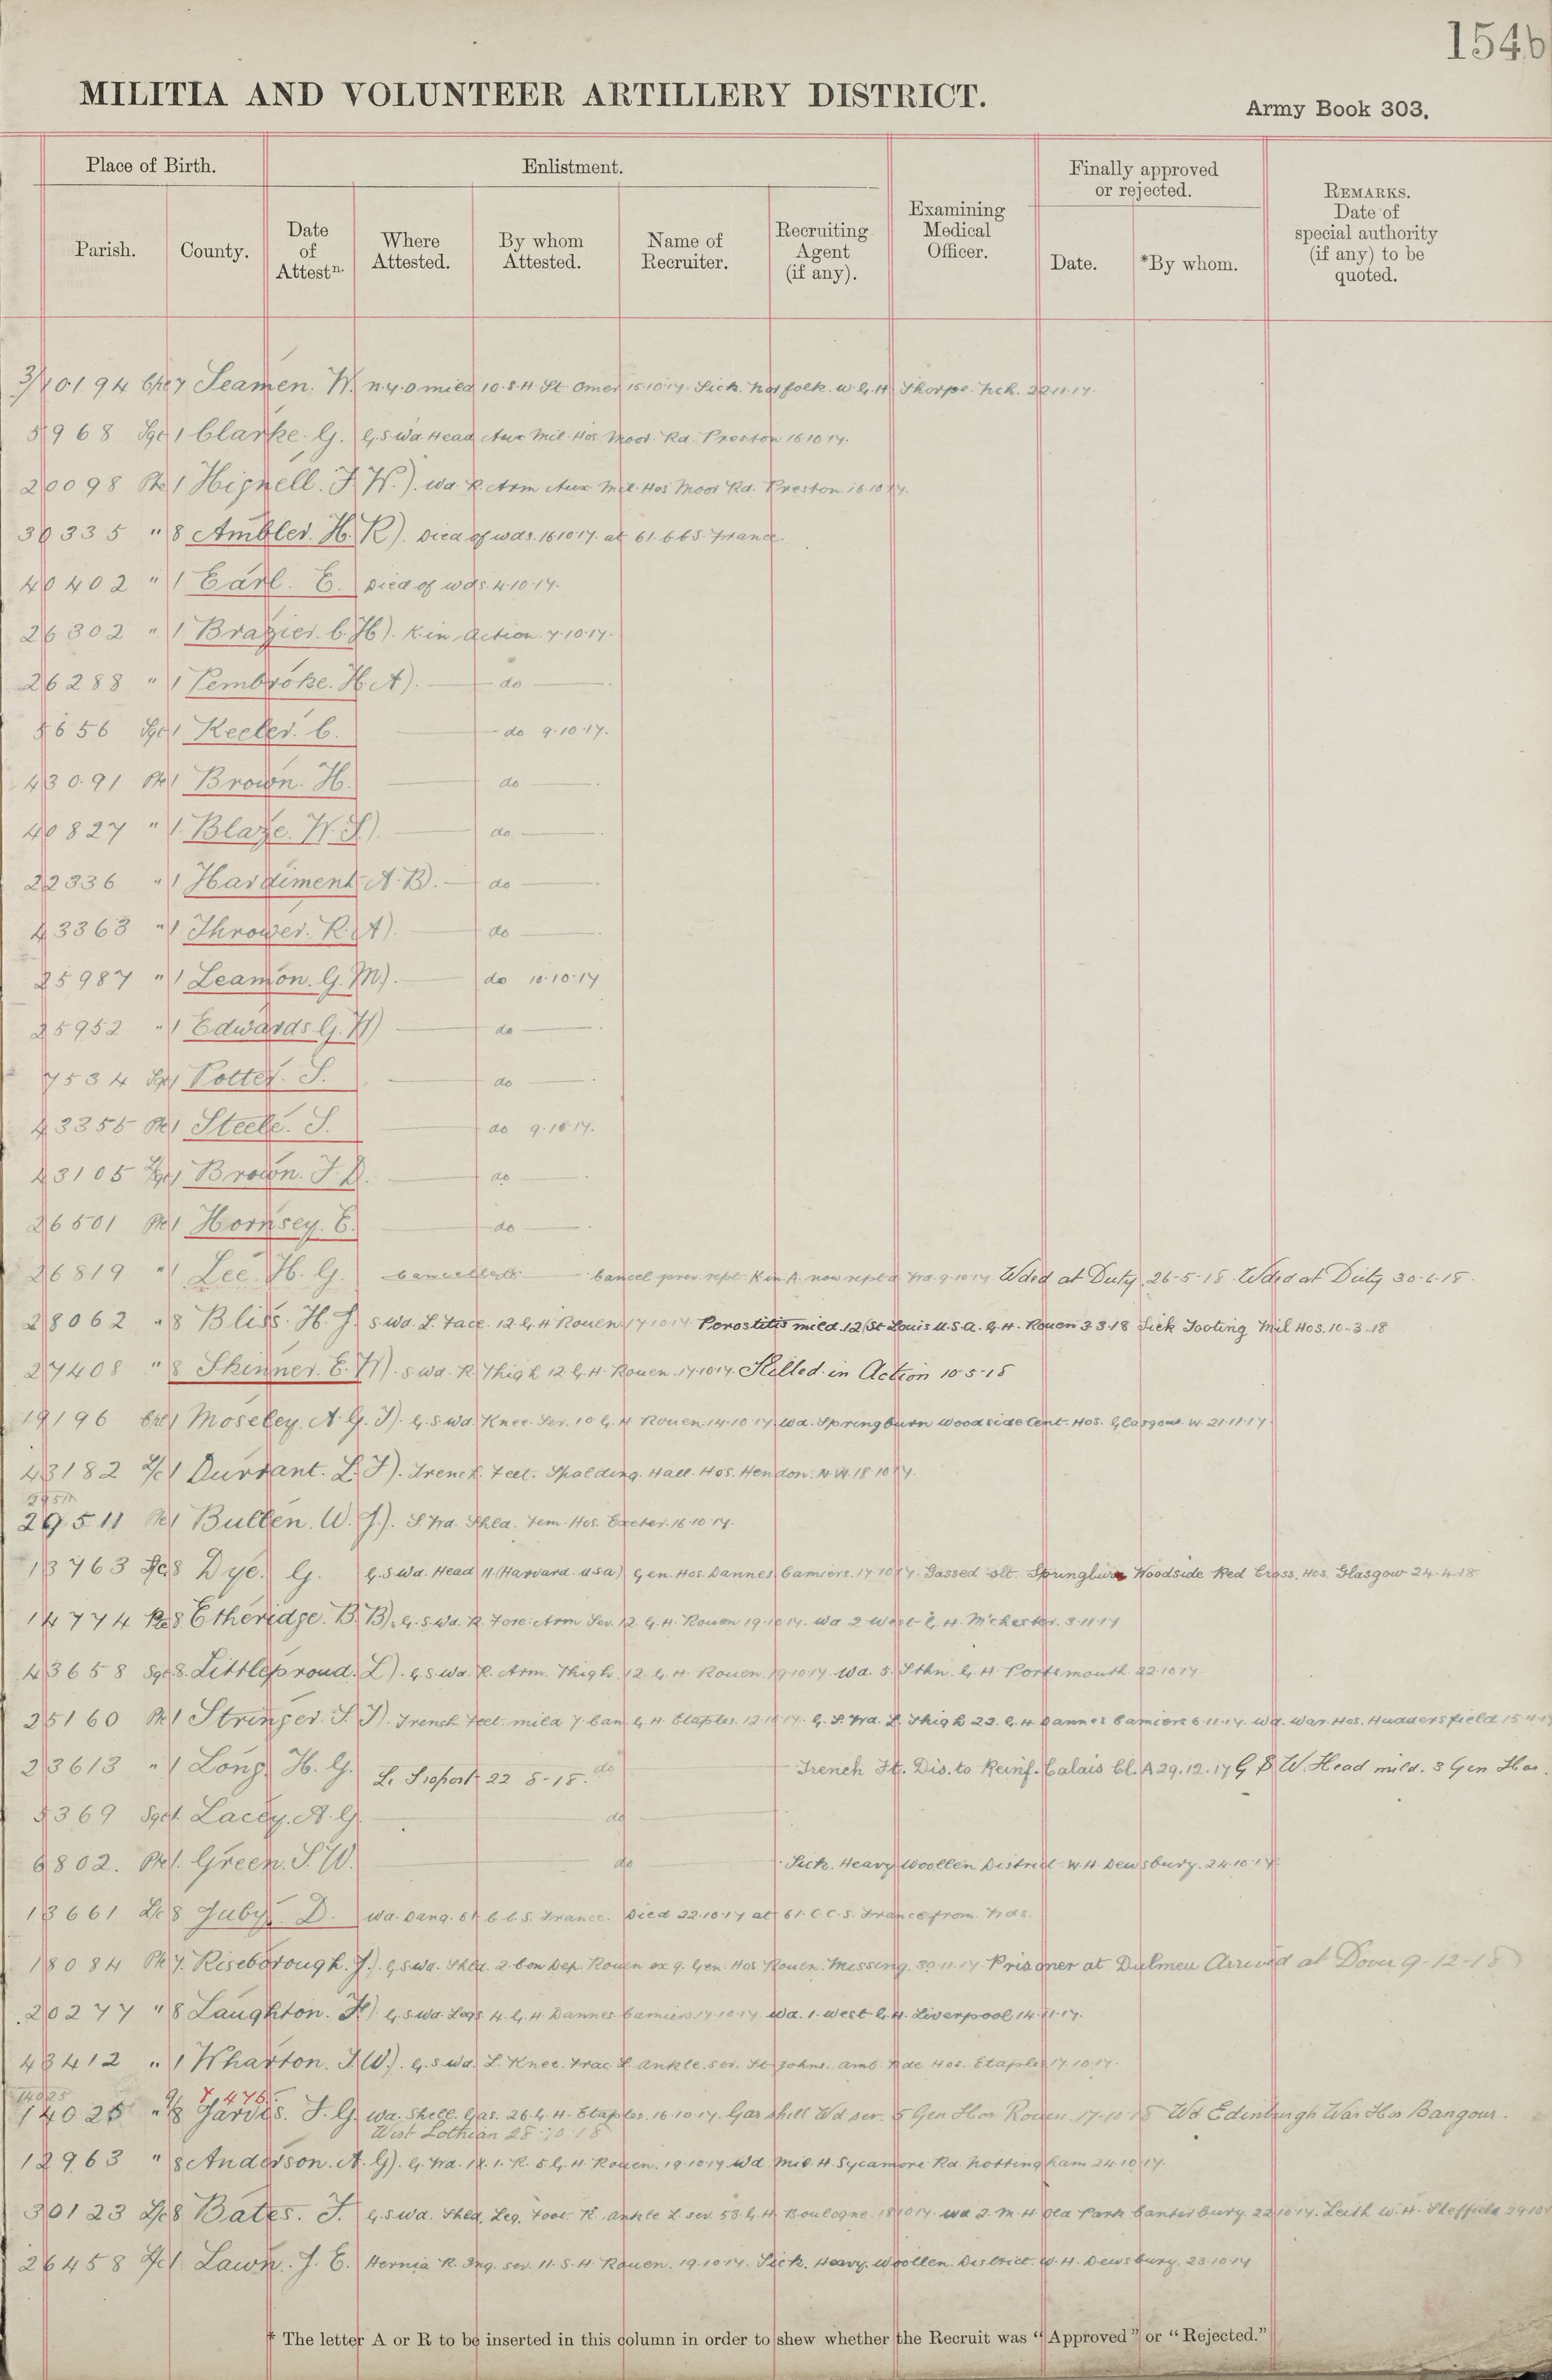 154b
MILITIA AND VOLUNTEER ARTILLERY DISTRICT.
Army Book 303.
Place of Birth. Enlistment. Finally approved or rejected.
Parish. County. Date of Attestn. Where Attested. By whom Attested. Name of Recruiter. Recruiting Agent (if any). Examining Medical Officer. Date. *By whom. REMARKS. Date of special authority (if any) to be quoted.
3/10194 Seamen. W. n.y.d mild 10.S.H. St Omer 15.10.17. Sick. Norfolk. W.H. Thorpe. Nch. 22.11.17.
8968 Sgt 1 Clarke. G. G.S. Wd Head Aux Mil. Hos Moor. Rd. Preston 16.10.17.
20098 Pte 1 Hignell. F.W.). Wd. R. Arm Aux Mil. Hos Moor Rd. Preston. 16.10.17.
30335 " 8 Ambler. H.R). Died of wds. 16.10.17. at 61.C.C.S. France.
40402 " 1 Earl. E. Died of wds. 4.10.17.
26302 " 1 Brazier. C.H). K in Action. 7.10.17.
26288 " 1 Pembroke. H.A). do
8656 Sgt 1 Keeler. C. do 9.10.17.
43091 Pte 1 Brown. H. do
40827 " 1 Blaze. W.S). do
22336 " 1 Hardiment A.B. do
43363 " 1 Thrower. R.A). do
25987 " 1 Leamon. G.M). do 10.10.17
25952 " 1 Edwards G.W) do
7534 Potter. S. do
43355 Pte 1 Steele. S. do 9.10.17.
43105 Brown. F.D. do
26501 Pte 1 Hornsey. E. do
26819 " 1 Lee. H.G. Cancelled Cancel prev rept. K in A. now reptd 9.10.17 Wded at Duty 26-5-18. Wded at Duty 30-6-18.
28062 " 8 Bliss. H.J. S.Wd. L. Face. 12.G.H Rouen 17.10.17 Porostitis mild. 12 St Louis U.S.A. G.H. Rouen 3.3.18 Sick Tooting Mil Hos. 10-3-18
27408 " 8 Skinner. E.W). S.Wd. R. Thigh 12.G.H. Rouen. 17.10.17. Killed in Action 10-5-18
19196 Moseley. A.G.F). G.S.Wd. Knee. Sev. 10 G.H Rouen 14.10.17. Wd. Springburn Woodside Cent. Hos. Glasgow. W. 21.11.17
43182 L/C 1 Durrant. L.F). Trench Feet. Spalding. Hall. Hos. Hendon. N.W. 18.10.17.
29511
29.511 Pte 1 Bullen. W.J). Shld. Tem. Hos. Exeter. 16.10.17.
13763 8 Dye. G. G.S Wd. Head 11. (Harvard. USA) Gen. Hos. Dannes Camiers. 17.10.17. Gassed slt. Springburn Woodside Red Cross. Hos. Glasgow 24.4.18
14774 Pte 8 Etheridge. B.B). G.S.Wd. R. Fore. Arm Sev. 12. G.H. Rouen 19.10.17. Wd 2 West G.H. M'chester. 3.11.17
43658 Sgt 8. Littleproud. L). G.S Wd. R. Arm. Thigh. 12. G.H. Rouen. 19.10.17. Wd. 5. Sthn. G.H Portsmouth 22.10.17
25160 Pte 1 Stringer. S.F). Trench Feet. mild 7. Can. G.H. Etaples. 12.10.17. G.S. Wd. L. Thigh 23. G.H Dannes Camiers 6.11.17. Wd. War. Hos. Huddersfield 15.11.17
23613 " 1 Long H.G. 22-8-18. do Trench Ft. Dis. to Reinf. Calais Cl. A 29.12.17 G S W. Head mild. 3 Gen Hos.
8369 Sgt 1 Lacey. A.G. do
6802. Pte 1. Green. S.W. do Sick. Heavy Woollen District W.H Dewsbury. 24.10.17.
13661 8 Juby. D. Wd. Dang. 61 C.C.S. France. Died 22.10.17 at 61. C.C.S. France from Wds.
18084 Pte 7. Riseborough. J.). G.S Wd. Shld. 2. Con Dep. Rouen ex 9. Gen. Hos Rouen. Missing. 30.11.17. Prisoner at Dulmen Arrived at Dover 9-12-18
20277 " 8 Laughton. G.S Wd. Legs. 4. G.H. Dannes Camiers 17.10.17. Wd. 1. West G.H. Liverpool 14.11.17.
43412 " 1 Wharton. J.W). G.S Wd. L. Knee. Frac L Ankle. Sev. St Johns. Amb. Bde Hos. Etaples 17.10.17.
14025
14025 " 8 Jarvis. F.G. Wd. Shell. Gas. 26.G.H. Etaples. 16.10.17. Gas Shell Wd sev. 5 Gen Hos Rouen. 17-10-18 Wd Edinburgh War Hos Bangour.
West Lothian 25.10.18
12963 " 8 Anderson. A.G). 5 G.H. Rouen. 19.10.17 Wd Mil. H. Sycamore Rd. Nottingham 24.10.17.
30123 8 Bates. J. G.S Wd. Shld, Leg, Foot R. ankle L. sev. 53. G.H Boulogne. 18.10.17. Wd 2. M.H Old Park Canterbury. 22.10.17. W.H. Sheffield
26458 1 Lawn. J.E. Hernia R. Ing. sev. 11. S.H. Rouen. 19.10.17. Sick. Heavy. Woollen. District. W.H. Dewsbury. 23.10.17
* The letter A or R to be inserted in this column in order to shew whether the Recruit was "Approved" or "Rejected."